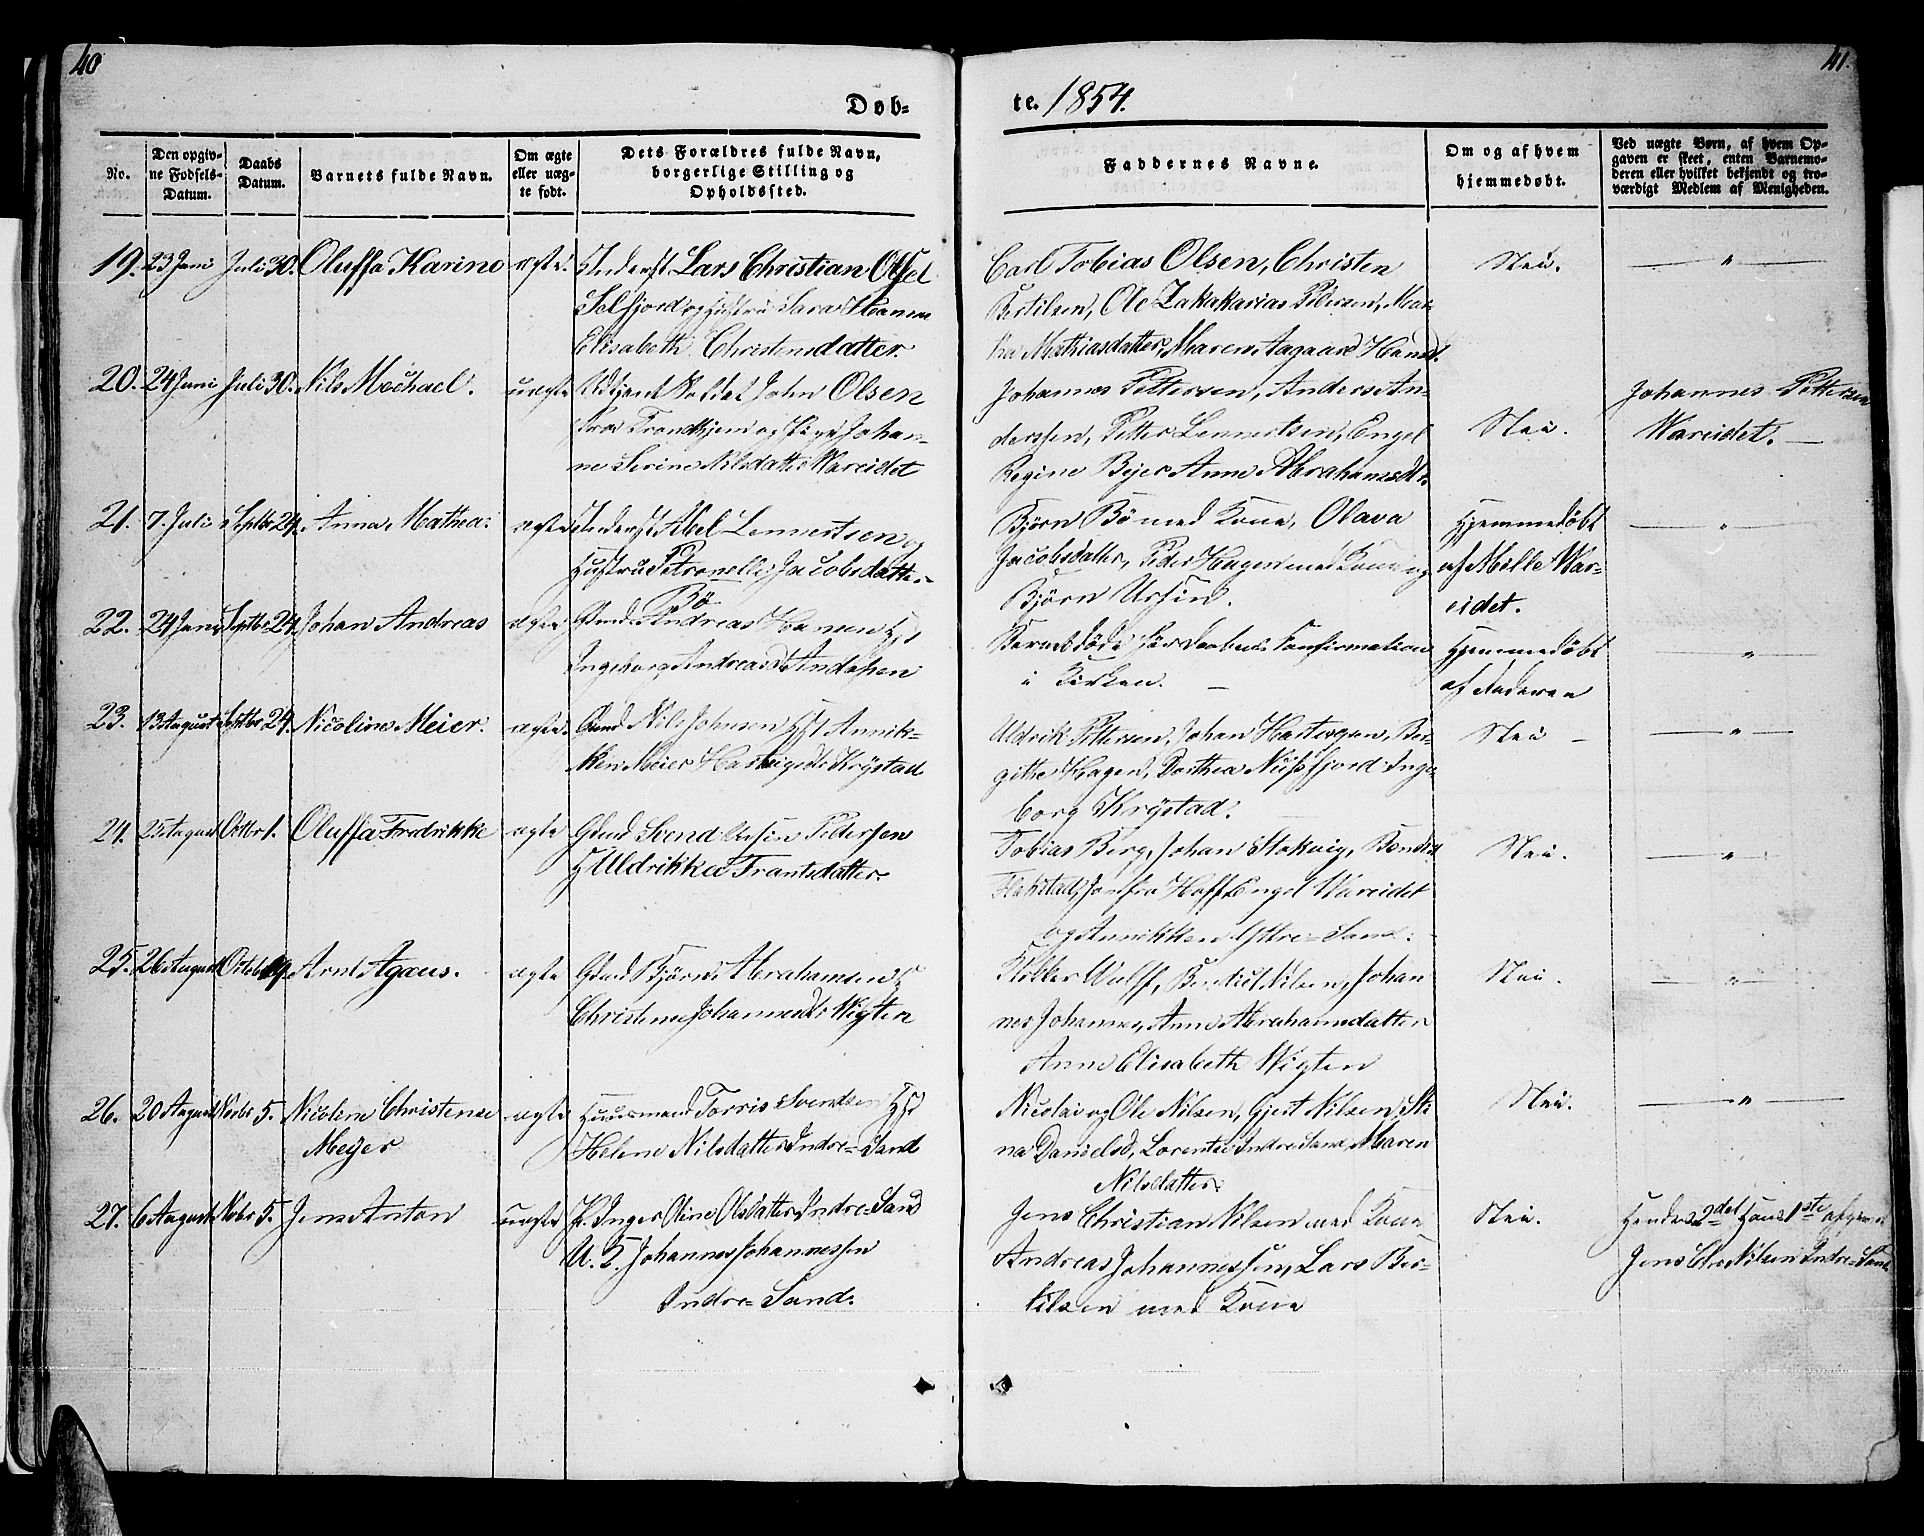 40
41.
Døb-
te. 1854.
No.
Den opgiv-
ne Fødsels-
Datum.
Daabs
Datum.
Barnets fulde Navn.
Om ægte
eller uæg-
te født.
Dets Forældres fulde Navn,
borgerlige Stilling og
Opholdssted.
Faddernes Navne.
Om og af hvem
hjemmedøbt.
Ved uægte Børn, af hvem Op-
gaven er skeet, enten Barnemo-
deren eller hvilket bekjendt og tro-
værdigt Medlem af Menigheden.
19. 23 Juni Juli 30. Oluffa Karine ægte. Inderst Lars Christian
Selfjord og Hustru Sara Hanna
Elisabeth Christensdatter.
Carl Tobias Olsen, Christen
Bertilsen, Ole Zakakarias Pedersen, Mar-
tha Mathiasdatter, Maren Aagaard Hansd.
Nei.
"
20. 24 Juni Juli 30. Nils Mochael. uægte Udtjent Soldat John Olsen
fra Trondhjem og Pige Johan-
ne Serine Nilsdatter Wareidet
Johannes Pettersen, Anders An-
derssen, Petter Lennertsen, Engel
Regine Bejer Anne Abrahamsdtr
Nei.
Johannes Pettersen
Wareidet.
21. 7. Juli Septbr 24. Anna Mathea. ægte Inderst Abel Lennertsen og
Hustru Petronelle Jacobsdatter
Bö
Björn Bö med Kone, Olava
Jacobsdatter, Peder Hagen med Kone og
Björn Ursin.
Hjemmedøbt
af Mille War-
eidet.
"
22. 24 Juni Septbr 24. Johan Andreas ægte Gmd Andreas Hansen H.
Ingeborg Andreasd.
Barnet döde för Daabens Confirmation
i Kirken.
Hjemmedøbt
af Faderen
"
23. 13 August Septbr 24. Nicoline Meier. ægte. Gmd Nils Johnsen Hst Annik-
ken Meier Hartvigsdtr Krÿstad
Uldrik Pettersen, Johan Hartvigsen, Ber-
githe Hagen, Dorthea Nussfjord Inge-
borg Krÿstad.
Nei
"
24. 25 August Octbr 1. Oluffa Fredrikke ægte Gmd Svend Ursin Pedersen
H Uldrikka Frantsdatter.
Tobias Berg, Johan Stokvig, Bendix
Flakstad, Jomfru Hoff Engel Wareidet
og Annikken Yttre-Sand.
Nei.
"
25. 26 August Octob 19. Arnt Agæus. ægte Gmd Björn Abrahamsen H
Christense Johannesdtr Wigten
Wulff, Bendix Nilsen, Johan
nes Johannes, Anne Abrahamsdatter
Anne Elisabeth Wigten
Nei.
"
26. 20 August Novbr 5. Nicoline Christense
Meÿer
ægte Huusmand Torris Svendsen Hst
Helene Nilsdatter Indre-Sand
Nicolai og Ole Nilsen, Gjert Nilsen, Sti-
na Danielsd, Lorentze Indre Sand, Maren
Nilsdatter.
Nei.
"
27. 6 August Nobr 5. Jens Anton uægte P. Inger Oline Olsdatter, Indre-Sand
U. K. Johannes Johannessen
Indre-Sand.
Jens Christian Nilsen med Kone
Andreas Johannessen, Lars Ber-
tilsen med Kone
Nei.
Hendes 2det Hans 1ste
Jens Chr. Nilsen Indre-Sand